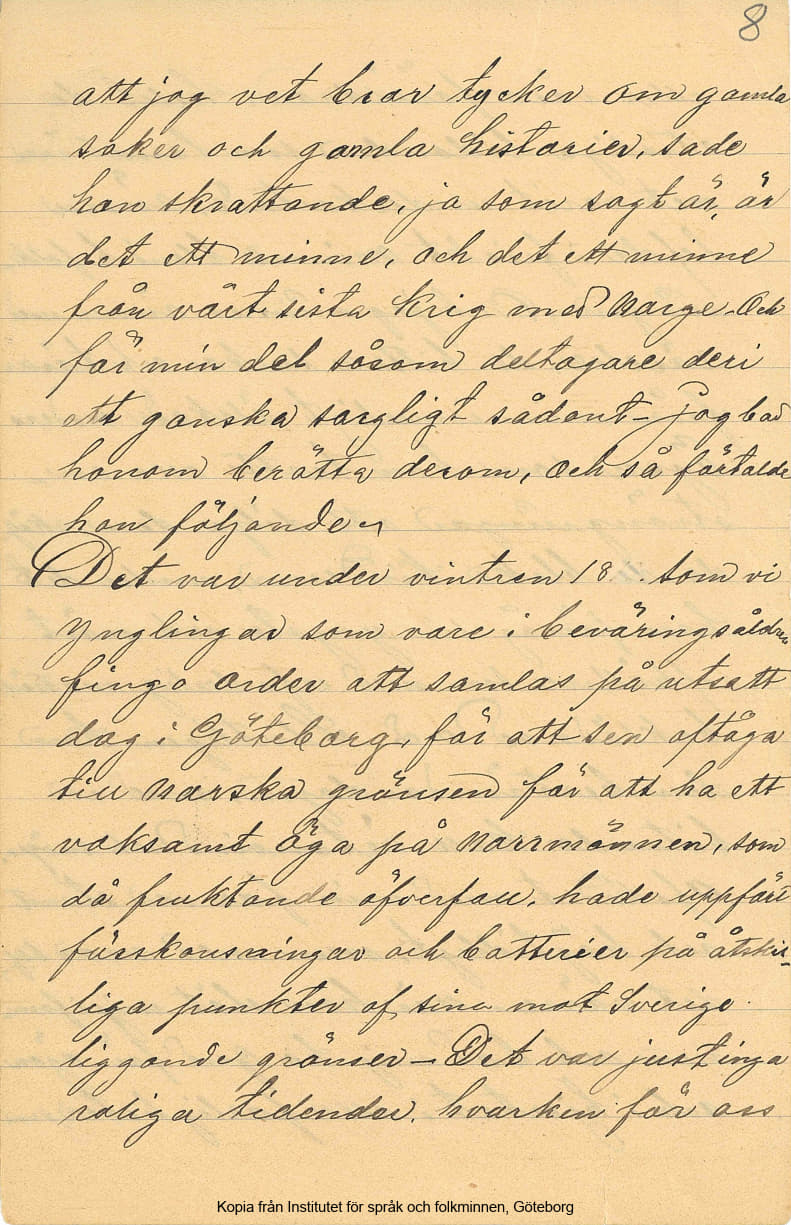 8
att jag vet bror tycker om gamla
saker och gamla historier, sade
han skrattande, ja som sagt är, är
det ett minne, och det ett minne
från vårt sista krig med Norge. Och
för min del såsom deltagare deri
ett ganska sorgligt sådant – Jag bad
honom berätta derom, och så förtalde
han följande.
Det var under vintren 18 . som vi
Ynglingar som vore i beväringsåldren
fingo order att samlas på utsatt
dag i Göteborg, för att sen aftåga
till Norska gränsen för att ha ett
vaksamt öga på Norrmännen, som
då fruktande öfverfall, hade uppfört
förskansningar och batterier på åtskil-
liga punkter af sina mot Sverige
liggande gränser – Det var just inga
roliga tidender, hvarken för oss
Kopia från Institutet för språk och folkminnen, Göteborg